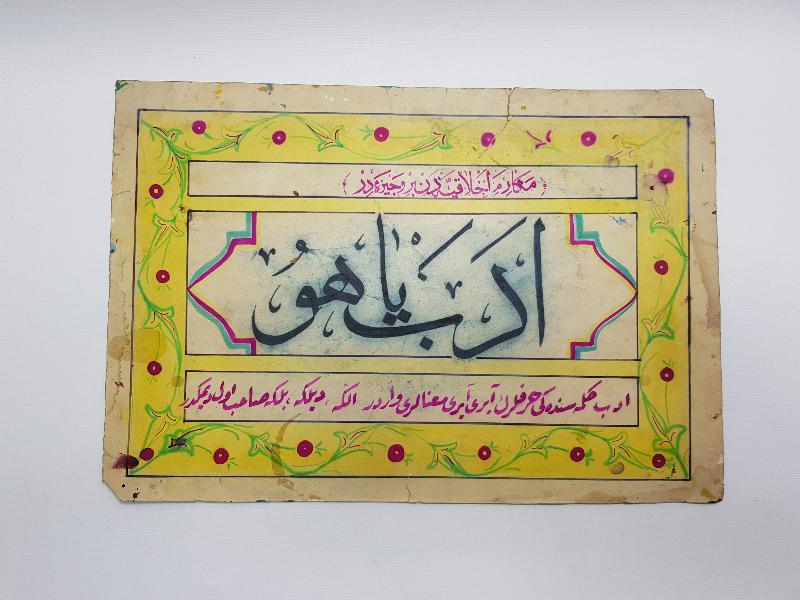 مَكَارِمِ اَخْلَاقِيَّه دن بر وجیزه در
ادب یا هو
ادب كلمه سنده كی حرفلرڭ آیری آیری معنالری واردر الكه ، دیلكه ، بلكه صاحب اول دیمكدر